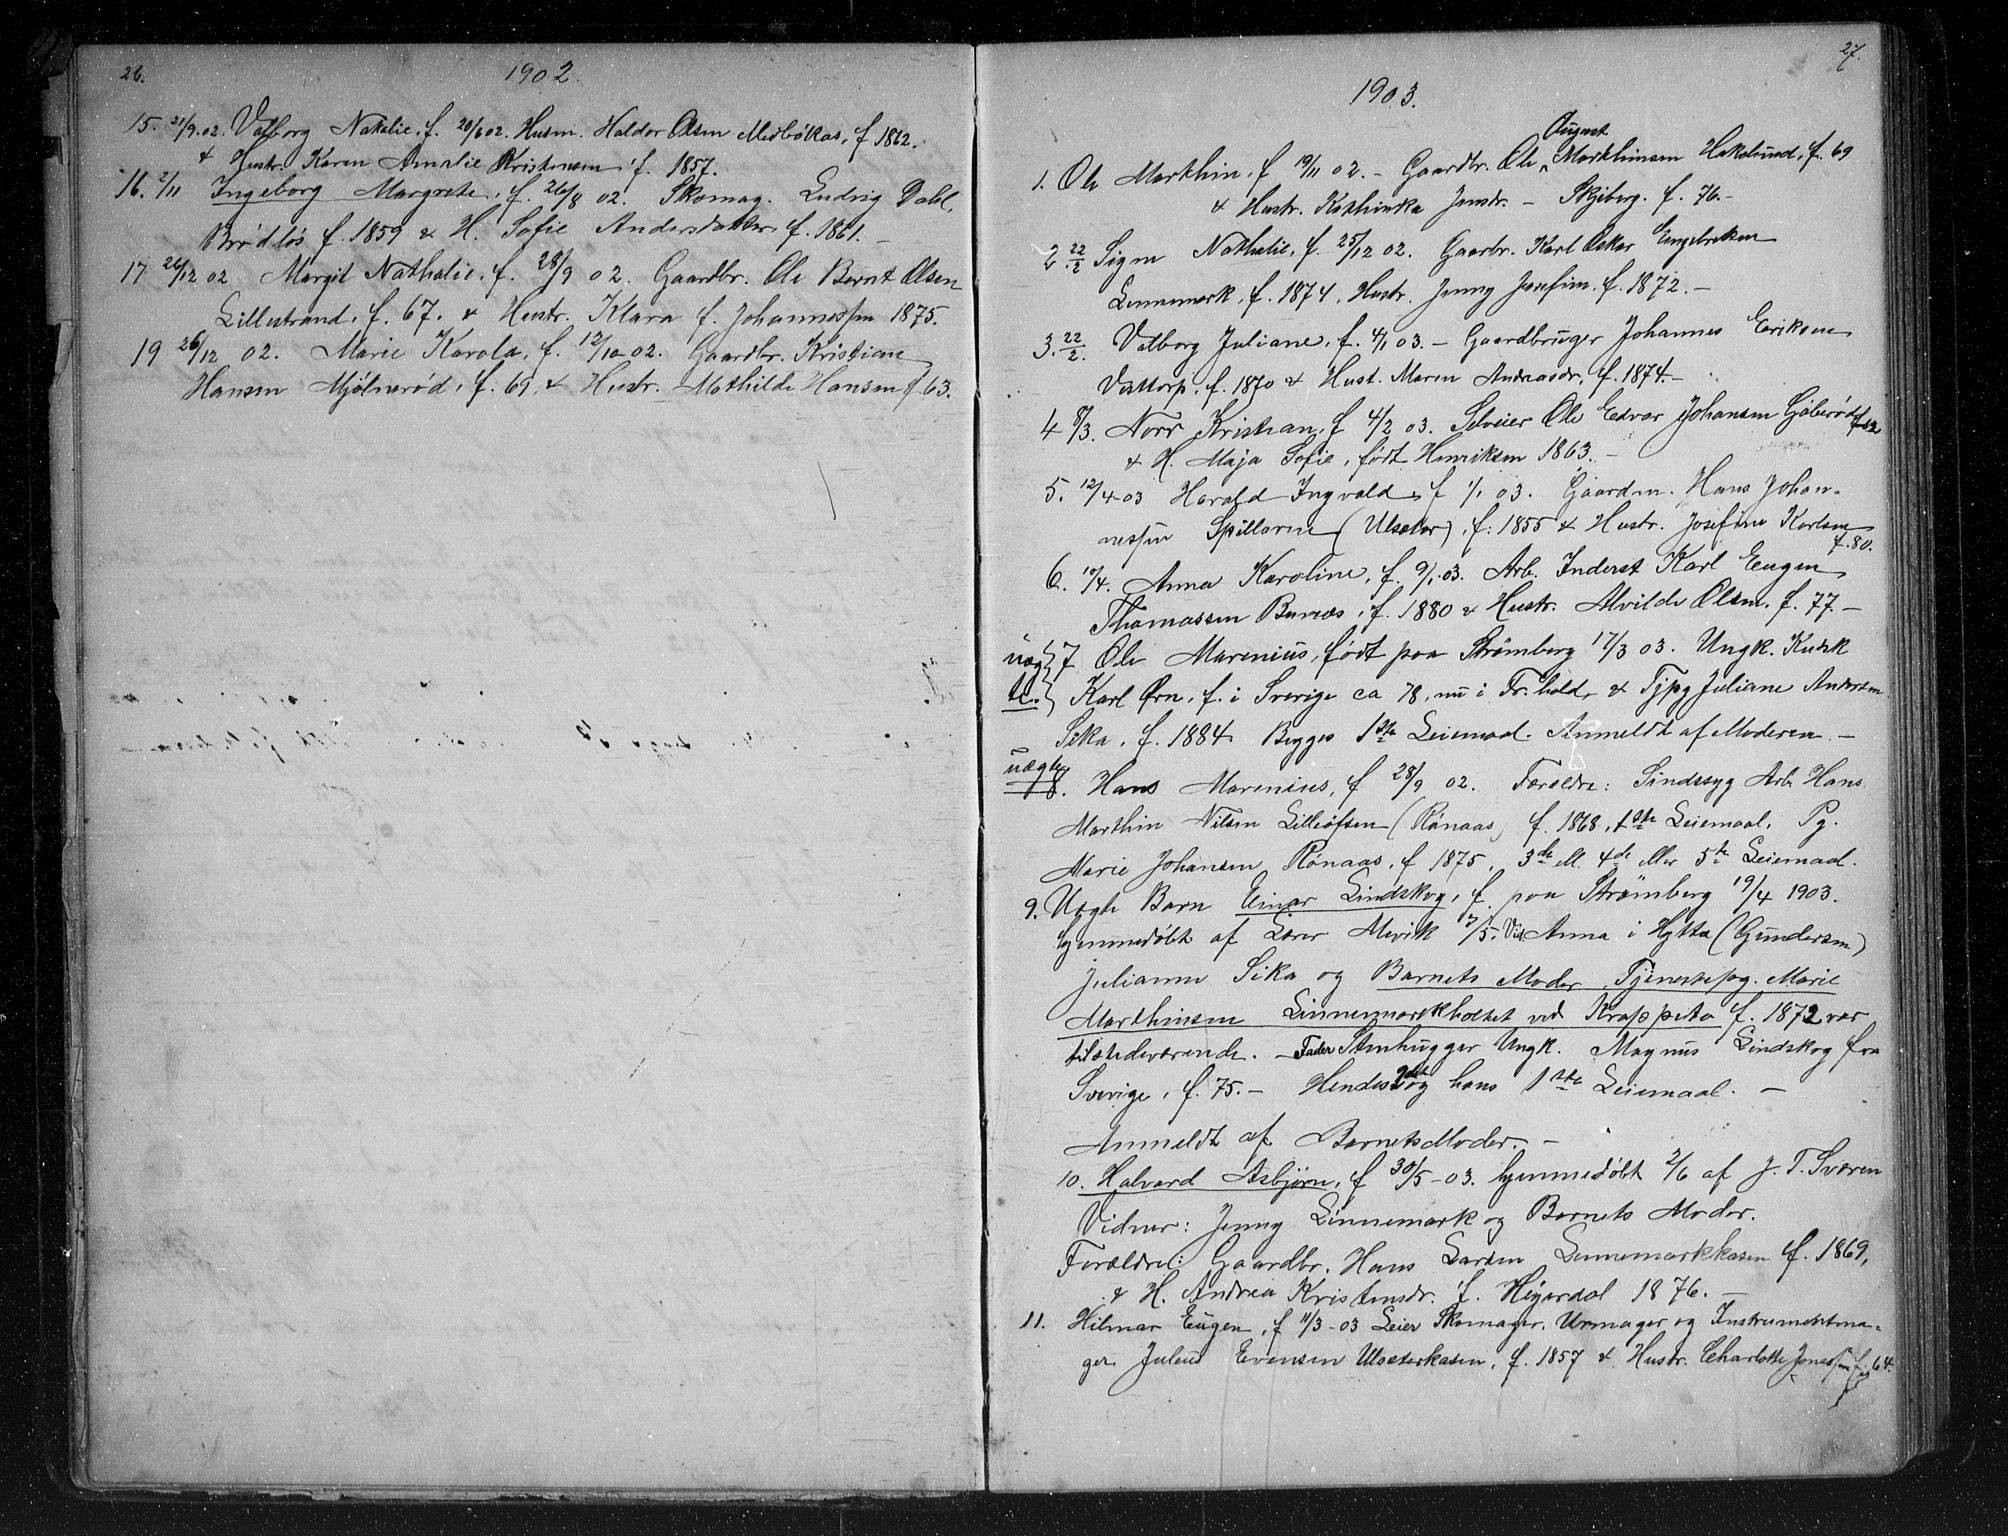 26.
1902
15. 21/9.02. Valborg Natalie, f. 20/6 02. Husm. Haldor Olsen Medbökas, f 1862.
& Hustr. Karen Amalie Kristensen f. 1857.
16. 2/11 Ingeborg Margrete, f. 26/8 02. Skomag. Ludvig Dahl,
Brødløs f. 1859 & H. Sofie Andersdatter f. 1861. –
17 26/12 02 Margit Nathalie, f. 28/9 02. Gaardbr. Ole Bernt Olsen
Lillestrand, f. 67. & Hustr. Klara f. Johannessen 1875.
19 26/12 02. Marie Karola, f. 12/10 02. Gaardbr. Kristian
Hansen Mjölnerød, f. 69, & Hustr. Mathilde Hansen f. 63.
27.
1903.
August
1. Ole Marthin, f 19/11 02. – Gaardbr. Ole Marthinsen Hakelund, f. 69
& Hustr. Kathinka Jensdr. – Skjeberg. f. 76. –
2 22/2 Signe Nathalie, f. 25/12 02. Gaarbr. Karl Oskar Engebretsen
Linnemark, f. 1874, Hustr. Jenny Josefine, f. 1872. –
3. 22/2. Valborg Juliane, f. 4/1 03. – Gaardbruger Johannes Eriksen
Vættorp, f. 1870 & Hust. Maren Andreasdr. f. 1874. –
4 8/3. Norr Kristian, f 4/2 03. Selveier Ole Edvar Johansen Gjöberød f. 62
& H. Maja Sofie, født Henriksen 1863. –
5. 12/4-03 Harald Ingvald, f 1/1 03. Gaardm. Hans Johan-
nessen Spillaren (Ulsæter), f. 1855 & Hustr. Josefine Karlsen
f. 80.
6. 10/4. Anna Karoline, f. 9/1-03. Arb. Inderst Karl Eugen
Thomassen Burnæs, f. 1880 & Hustr. Alvilde Olsen, f. 77. –
uæg 7 Ole Marenius, født paa Strömberg 17/3 03. Ungk. Kudsk
te. Karl Örn, f. i Sverige ca 78, nu i Fr.hald, & Tjpg Juliane Andersen
Sika, f. 1884. Begges 1ste Leiemaal. Anmeldt af Moderen –
uægte
8. Hans Marenius, f 28/9 02. Forældre: Sindssyg Arb Hans
Marthin Nilsen Lilleöfsen (Rönaas) f. 1868, 1ste Leiemaal, Pg.
Marie Johansen Rönaas, f 1875, 3de ell. 4de eller 5te Leiemaal.
9. Uægte Barn Einar Lindskog, f. paa Strömberg 19/4 1903.
hjemmedöbt af Lærer Mevik 7/5. Vid. Anna i Hytta (Gundersen)
Julianne Sika og Barnets Moder Tjenestepg. Marie
Marthinsen Linnemarkholtet ved Krappeto f. 1872 var
tilstedeværende. – Fader Stenhugger Ungk. Magnus Lindskog fra
Sverige, f. 75. – Hendes 2det og hans 1ste Leiemaal. –
Anmeldt af Barnets Moder. –
10. Halvard Asbjørn, f 30/5-03. hjemmedöbt 2/6 af J. T. Sværen
Vidner: Jenny Linnemark og Barnets Moder.
Forældre: Gaardbr. Hans Larsen Linnemarkkasen f. 1869,
& H. Andrea Kristensdr. f. Högerdal 1876. –
11. Hilmar Eugen, f 11/3-03 Leier Skomager, Urmager og Instrumentma-
ger Julius Evensen Ulseterkasen, f. 1857 & Hustr. Charlotte Jonassen f. 64.